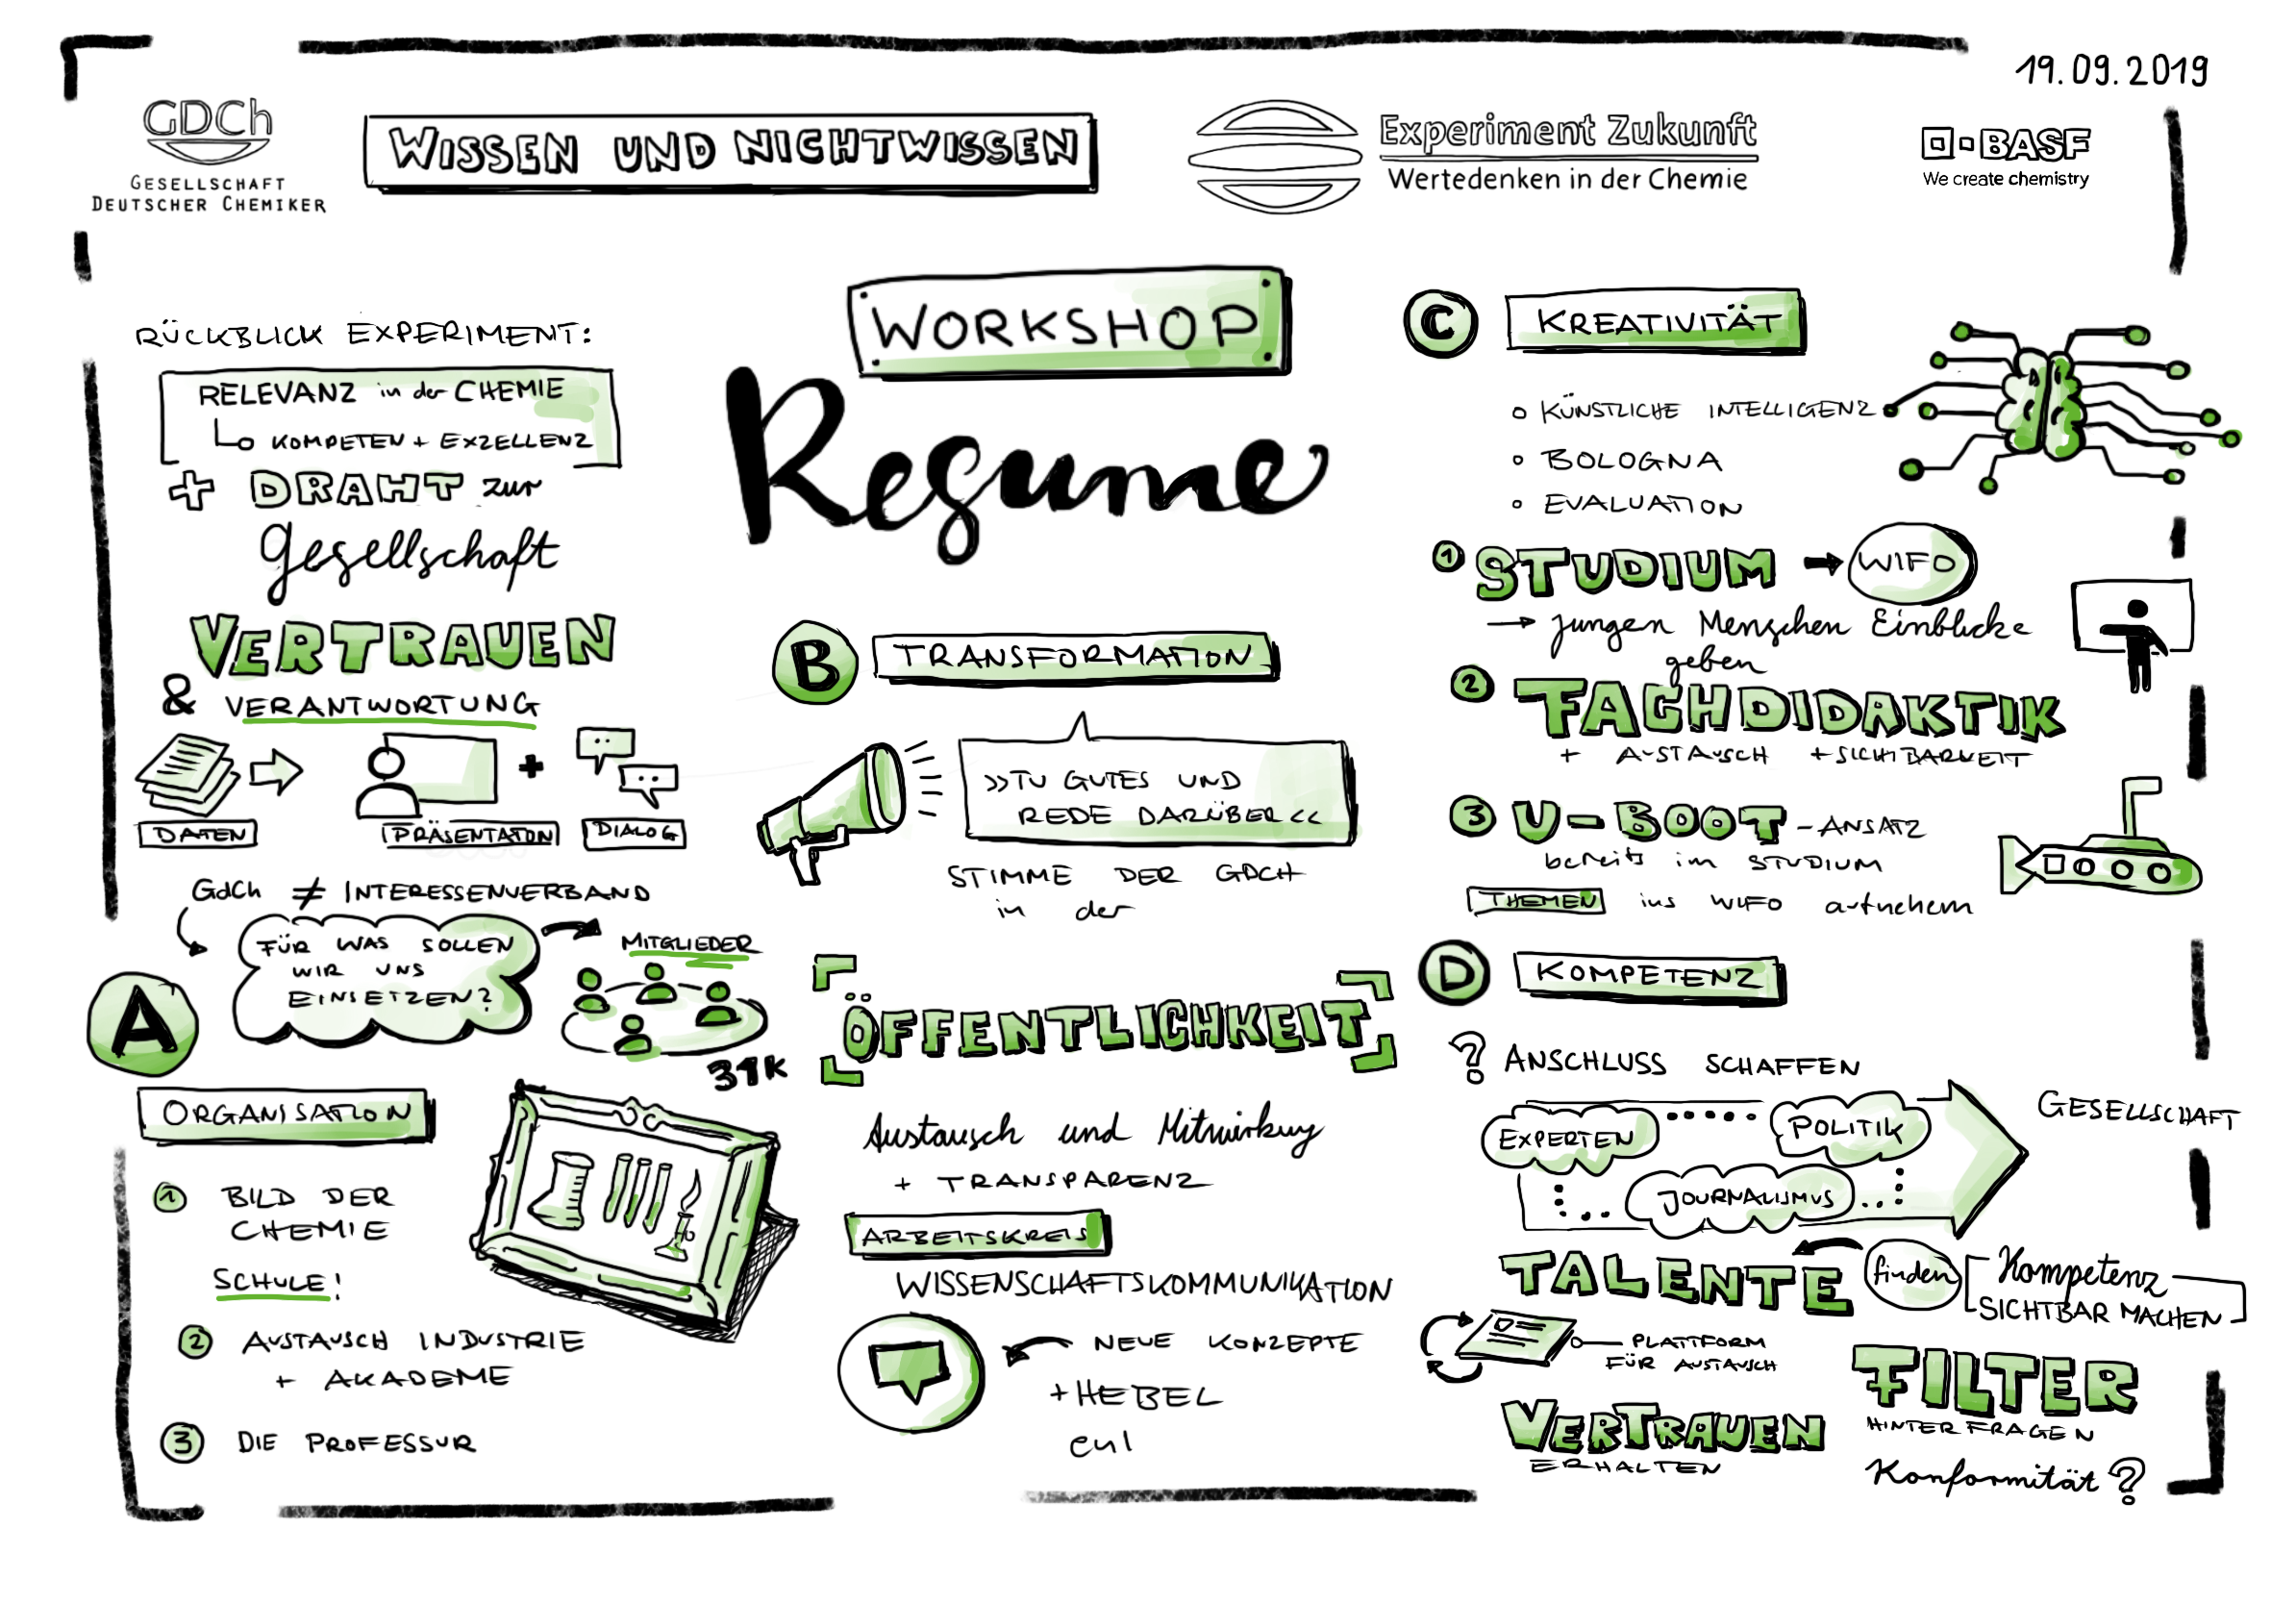 19.09.2019
GDCh
GESELLSCHAFT
DEUTSCHER CHEMIKER
WISSEN UND NICHTWISSEN
Experiment Zukunft
Wertedenken in der Chemie
BASF
We create chemistry
WORKSHOP
Resume
RÜCKBLICK EXPERIMENT:
RELEVANZ in der CHEMIE
KOMPETEN + EXZELLENZ
+ DRAHT zur
Gesellschaft
VERTRAUEN
& VERANTWORTUNG
DATEN
PRÄSENTATION
+
DIALOG
GdCh ≠ INTERESSENVERBAND
FÜR WAS SOLLEN
WIR UNS
EINSETZEN?
MITGLIEDER
31K
A
ORGANISATION
1 BILD DER
CHEMIE
SCHULE!
2 AUSTAUSCH INDUSTRIE
+ AKADEME
3 DIE PROFESSUR
B TRANSFORMATION
»TU GUTES UND
REDE DARÜBER«
STIMME DER GDCH
in der
ÖFFENTLICHKEIT
Austausch und Mitwirkung
+ TRANSPARENZ
ARBEITSKREIS
WISSENSCHAFTSKOMMUNIKATION
NEUE KONZEPTE
+ HEBEL
C KREATIVITÄT
KÜNSTLICHE INTELLIGENZ
BOLOGNA
EVALUATION
1 STUDIUM → WIFO
→ jungen Menschen Einblicke
geben
2 FACHDIDAKTIK
+ AUSTAUSCH + SICHTBARKEIT
3 U-BOOT-ANSATZ
bereits im STUDIUM
THEMEN ins WIFO aufnehem
D KOMPETENZ
? ANSCHLUSS SCHAFFEN
EXPERTEN
POLITIK
JOURNALISMUS
GESELLSCHAFT
TALENTE finden
Kompetenz
SICHTBAR MACHEN
PLATTFORM
FÜR AUSTAUSCH
VERTRAUEN
ERHALTEN
FILTER
HINTERFRAGEN
Konformität?